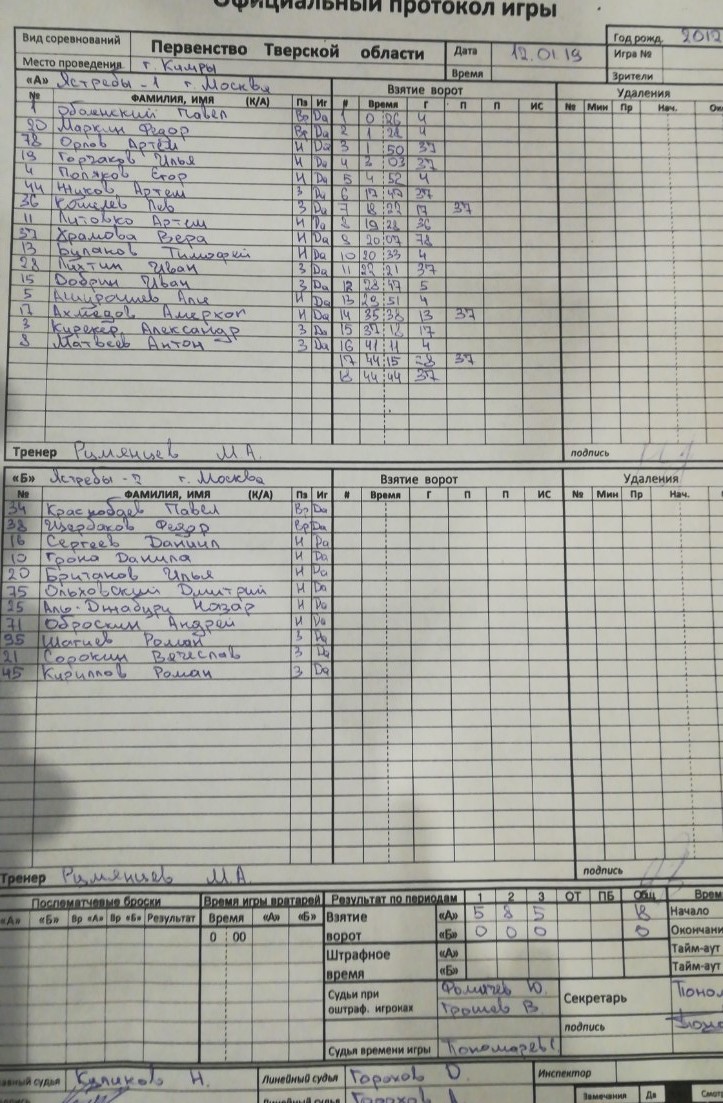 Официальный протокол игры
Вид соревнований Первенство Тверской области Дата 12.01.19 Год рожд. 2012
Место проведения г. Кимры Время Игра №
Зрители
«А» Ястребы-1 г. Москва Взятие ворот Удаления
№ ФАМИЛИЯ, ИМЯ (К/А) Пз Иг # Время Г П П ИС № Мин Пр Нач.
1 Павел Вр Da 1 0 26 4
20 Маркин Федор Вр Da 2 1 28 4
78 Орлов Артём Н Da 3 1 50 37
19 Горчаков Илья Н Da 4 3 03 37
4 Поляков Егор Н Da 5 4 52 4
44 Жуков Артем З Da 6 17 47 37
36 Кошелев Лев З Da 7 18 22 17 37
11 Литовко Артем Н Da 8 19 28 36
37 Храмова Вера Н Da 9 20 07 78
13 Буланов Тимофей Н Da 10 20 33 4
28 Лихтин Иван З Da 11 22 21 37
15 Добрин Иван З Da 12 28 47 5
5 Н Da 13 29 51 4
17 Ахмедов Н Da 14 35 38 13 37
3 Александр З Da 15 37 18 17
8 Матвеев Антон З Da 16 41 11 4
17 44 15 28 37
18 44 44 37
Тренер Румянцев М.А. подпись
«Б» Ястребы-2 г. Москва Взятие ворот Удаления
№ ФАМИЛИЯ, ИМЯ (К/А) Пз Иг # Время Г П П ИС № Мин Пр Нач.
34 Краснобаев Павел Вр Da
38 Щербаков Федор Вр Da
16 Сергеев Даниил Н Da
10 Грона Данила Н Da
20 Британов Илья Н Da
75 Ольховский Дмитрий Н Da
25 Аль-Джабури Назар Н Da
71 Оброскин Андрей Н Da
95 Шагиев Роман З Da
21 Сорокин Вячеслав З Da
45 Кириллов Роман З Da
Тренер Румянцев М.А. подпись
Послематчевые броски Время игры вратарей Результат по периодам 1 2 3 ОТ ПБ Общ
«А» «Б» Вр «А» Вр «Б» Результат Время «А» «Б» Взятие «А» 5 8 5 18 Начало
0 : 00 ворот «Б» 0 0 0 0
Штрафное «А» Тайм-аут
время «Б» Тайм-аут
Судьи при Фомичев Ю. Секретарь
оштраф. игроках Грошев В. подпись
Судья времени игры Пономарев
судья Куликов Н. Линейный судья Горохов О. Инспектор
Линейный судья Горохов Замечания Да